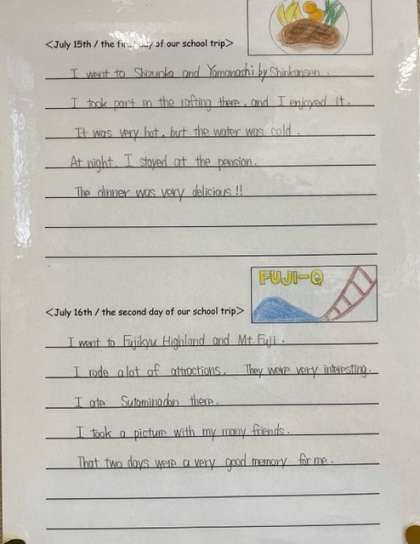 <July 15th / the first day of our school trip>
I went to Shizuoka and Yamanashi by Shinkansen.
I took part in the rafting there, and I enjoyed it.
It was very hot, but the water was cold.
At night, I stayed at the pension.
The dinner was very delicious!!
FUJI-Q
<July 16th / the second day of our school trip>
I went to Fujikyu Highland and Mt.Fuji.
I rode a lot of attractions. They were very interesting.
I ate Sutaminadon there.
I took a picture with my many friends.
That two days were a very good memory for me.